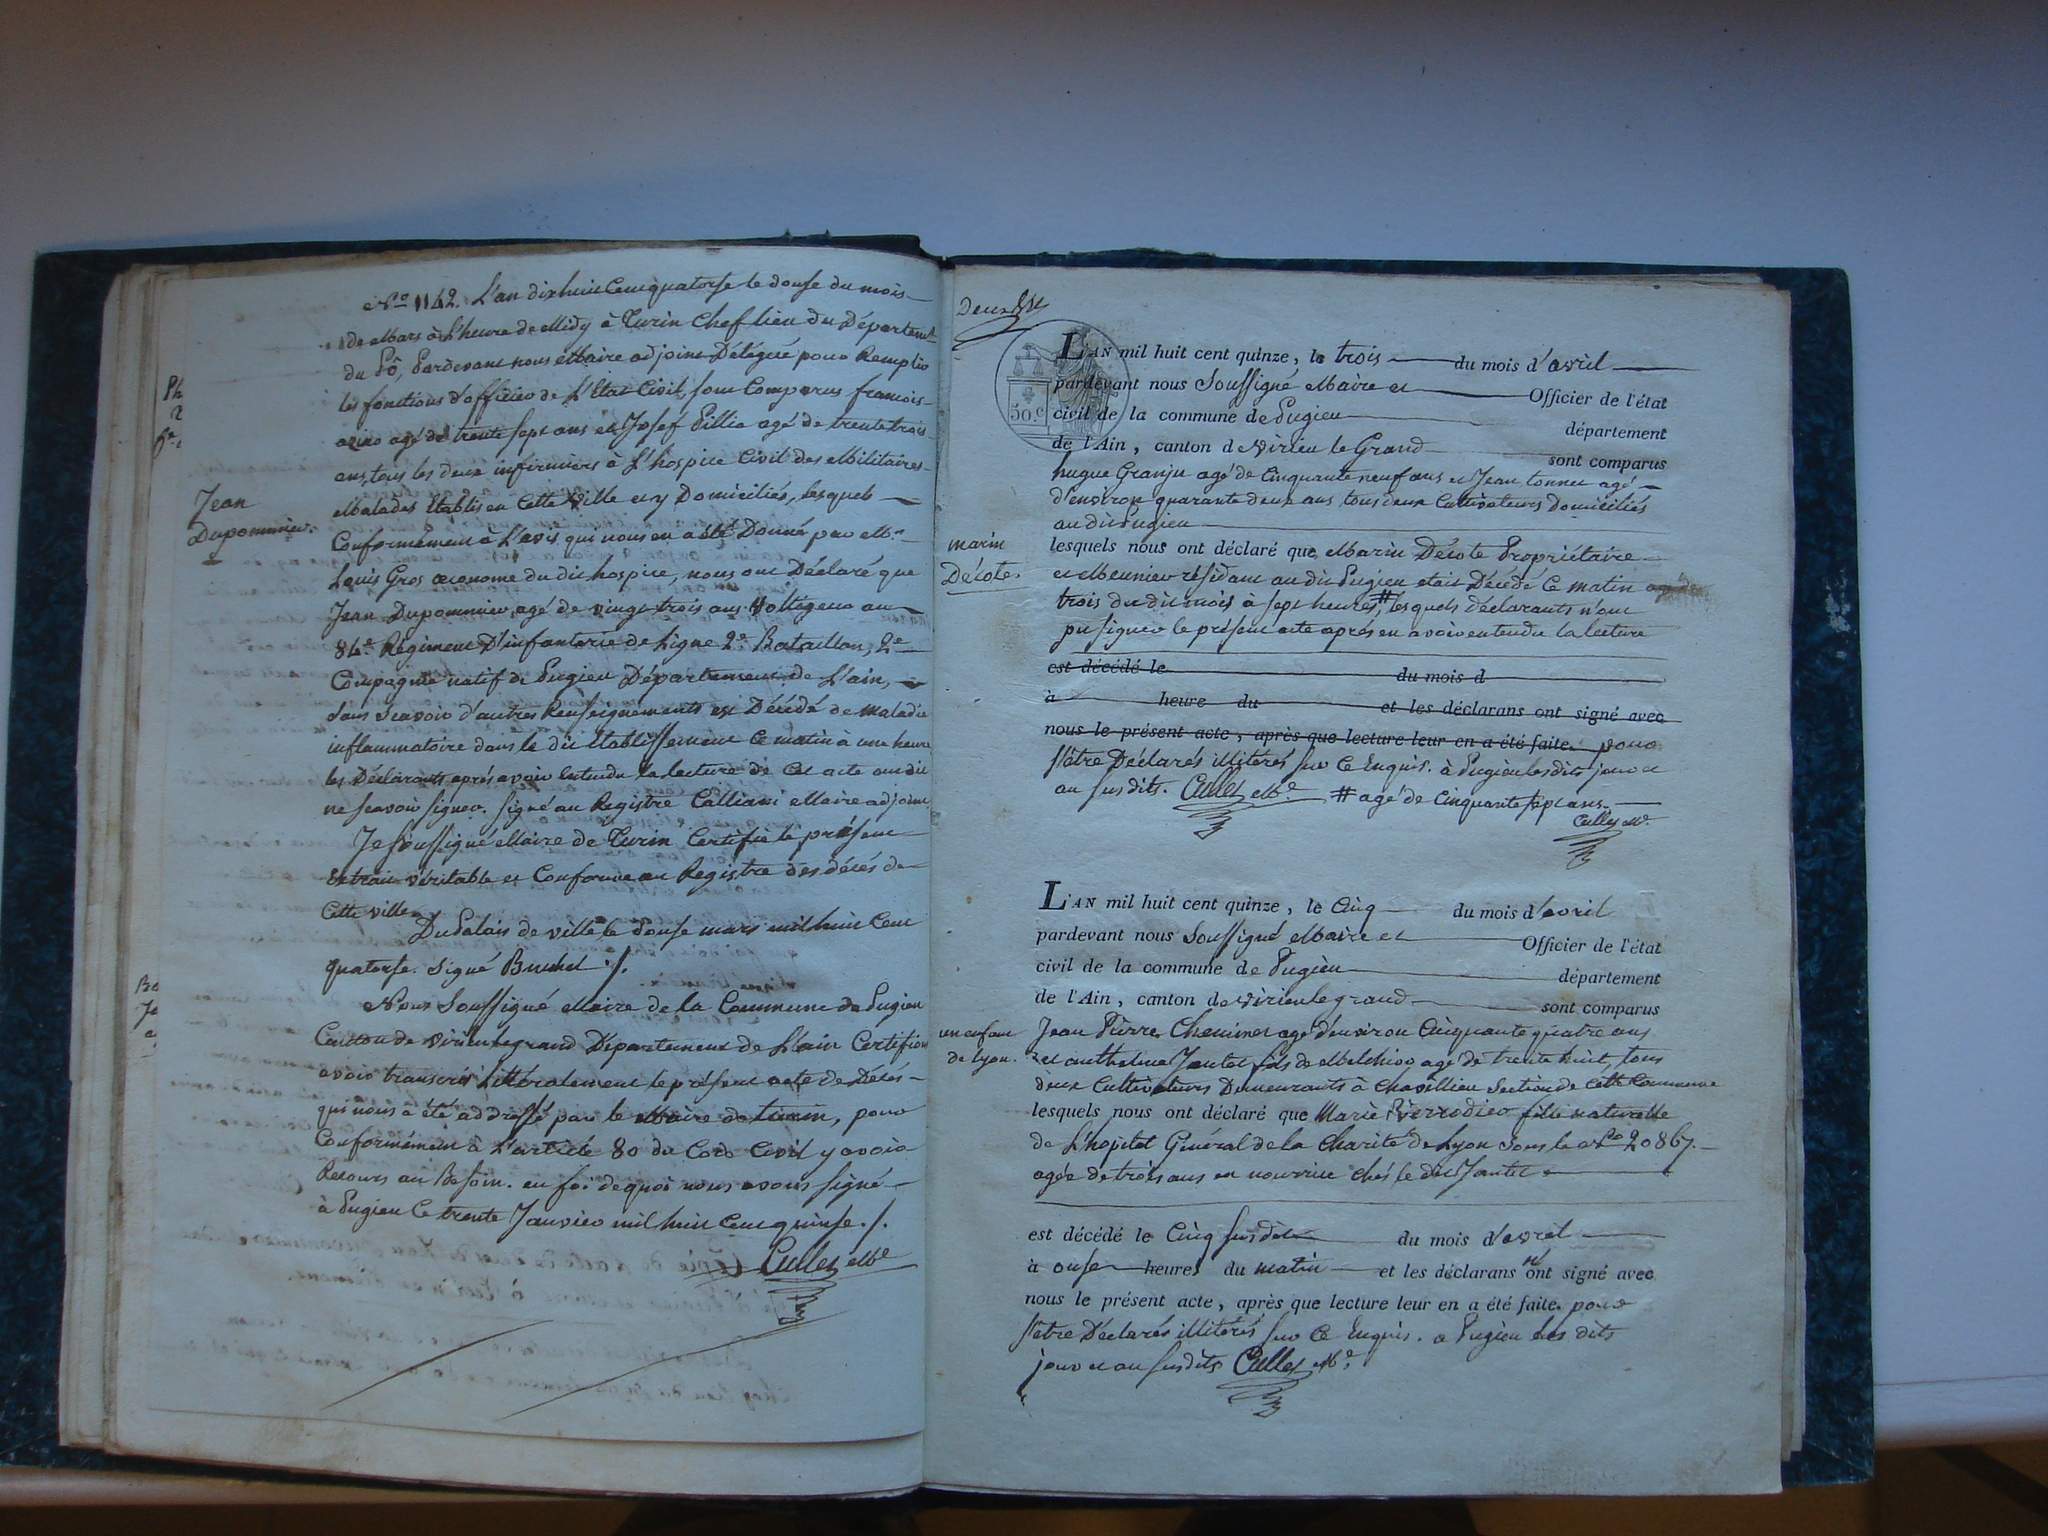 Jean
Dupommier.
Nº 1142. L'an dixhuit Cent quatorse le douse du mois
de Mars à L'heure de Midy à Turin Chef lieu du Départem.t
du Pô, Pardevant nous Maire adjoint Délégué pour Remplir
les fonctions d'officier de L'Etat Civil, sont Comparus francois
agé de trente sept ans et Josef Pillia agé de trente trois
ans, tous les deux infirmiers à L'hospice Civil des Militaires
Malades Etablis en Cette Ville et y Domiciliés, lesquels
Conformément à L'avis qui nous en a été Donné par Mr.
Louis Gros œconome du dit hospice, nous ont Déclaré que
Jean Dupommier, agé de vingt trois ans Voltigeur au
84.e Régiment D'infanterie de Ligne 2.e Bataillon, 2.e
Compagnie natif de Pugieu Département de L'ain,
sans scavoir d'autres Renseignements est Décédé de Maladie
inflammatoire dans le dit Etablissement Ce matin à une heure
les Déclarants après avoir Entendu la lecture de Cet acte ont dit
ne scavoir signer. Signé au Registre Calliani Maire adjoint
Je soussigné Maire de Turin Certifie le présent
Extrait véritable et Conforme au Registre des décés de
Cette ville.
Du Palais de ville, le douse mars mil huit Cent
quatorse. Signé Bruchet ./.
Nous Soussigné Maire de la Commune de Pugieu
Canton de Virieu le grand Département de L'ain Certifions
avoir transcrit Littéralement le présent acte de Décés
qui nous a été addressé par le Maire de turin, pour
Conformément à L'article 80 du Code Civil y avoir
Recours au Besoin. en foi de quoi nous avons signé
à Pugieu Ce trente Janvier mil huit Cent quinse ./.
Cullet Me
L'AN mil huit cent quinze, le trois du mois d'avril
pardevant nous Soussigné Maire et Officier de l'état
50.c
civil de la commune de Pugieu département
de l'Ain, canton de Virieu le Grand sont comparus
hugue Granju agé de Cinquante neuf ans et Jean tonnu agé
d'environ quarante deux ans tous deux Cultivateurs Domiciliés
au dit Pugieu
marin
Décote.
lesquels nous ont déclaré que Marin Décote Propriétaire
et Meunier résidant au dit Pugieu etait Décédé Ce matin
trois du dit mois à sept heures,# lesquels déclarants n'ont
pu signer le présent acte après en avoir entendu la lecture
est décédé le du mois d
à heure du et les déclarans ont signé avec
nous le présent acte, après que lecture leur en a été faite. pour
s'être Déclarés illitérés sur Ce Enquis. à Pugieu les dits jour et
an susdits. Cullet Me # agé de Cinquante sept ans.
Cullet Me
L'AN mil huit cent quinze, le Cinq du mois d'avril
pardevant nous Soussigné Maire et Officier de l'état
civil de la commune de Pugieu département
de l'Ain, canton de Virieu le grand sont comparus
un enfant
de Lyon.
Jean Pierre Cheminet agé d'environ Cinquante quatre ans
et anthelme Jantet fils de Melchior agé de trente huit, tous
deux Cultivateurs Demeurants à Chavillieu Section de Cette Commune
lesquels nous ont déclaré que Marie fille naturelle
de L'hopital Général de la Charité de Lyon sous le Nº 20867.
agée de trois ans en nourrice chés le dit Jantet
est décédé le Cinq susdit du mois d'avril
à onse heures du matin et les déclarans n'ont signé avec
nous le présent acte, après que lecture leur en a été faite. pour
s'être Déclarés illitérés sur Ce Enquis. a Pugieu les dits
jour et an susdits Cullet Me